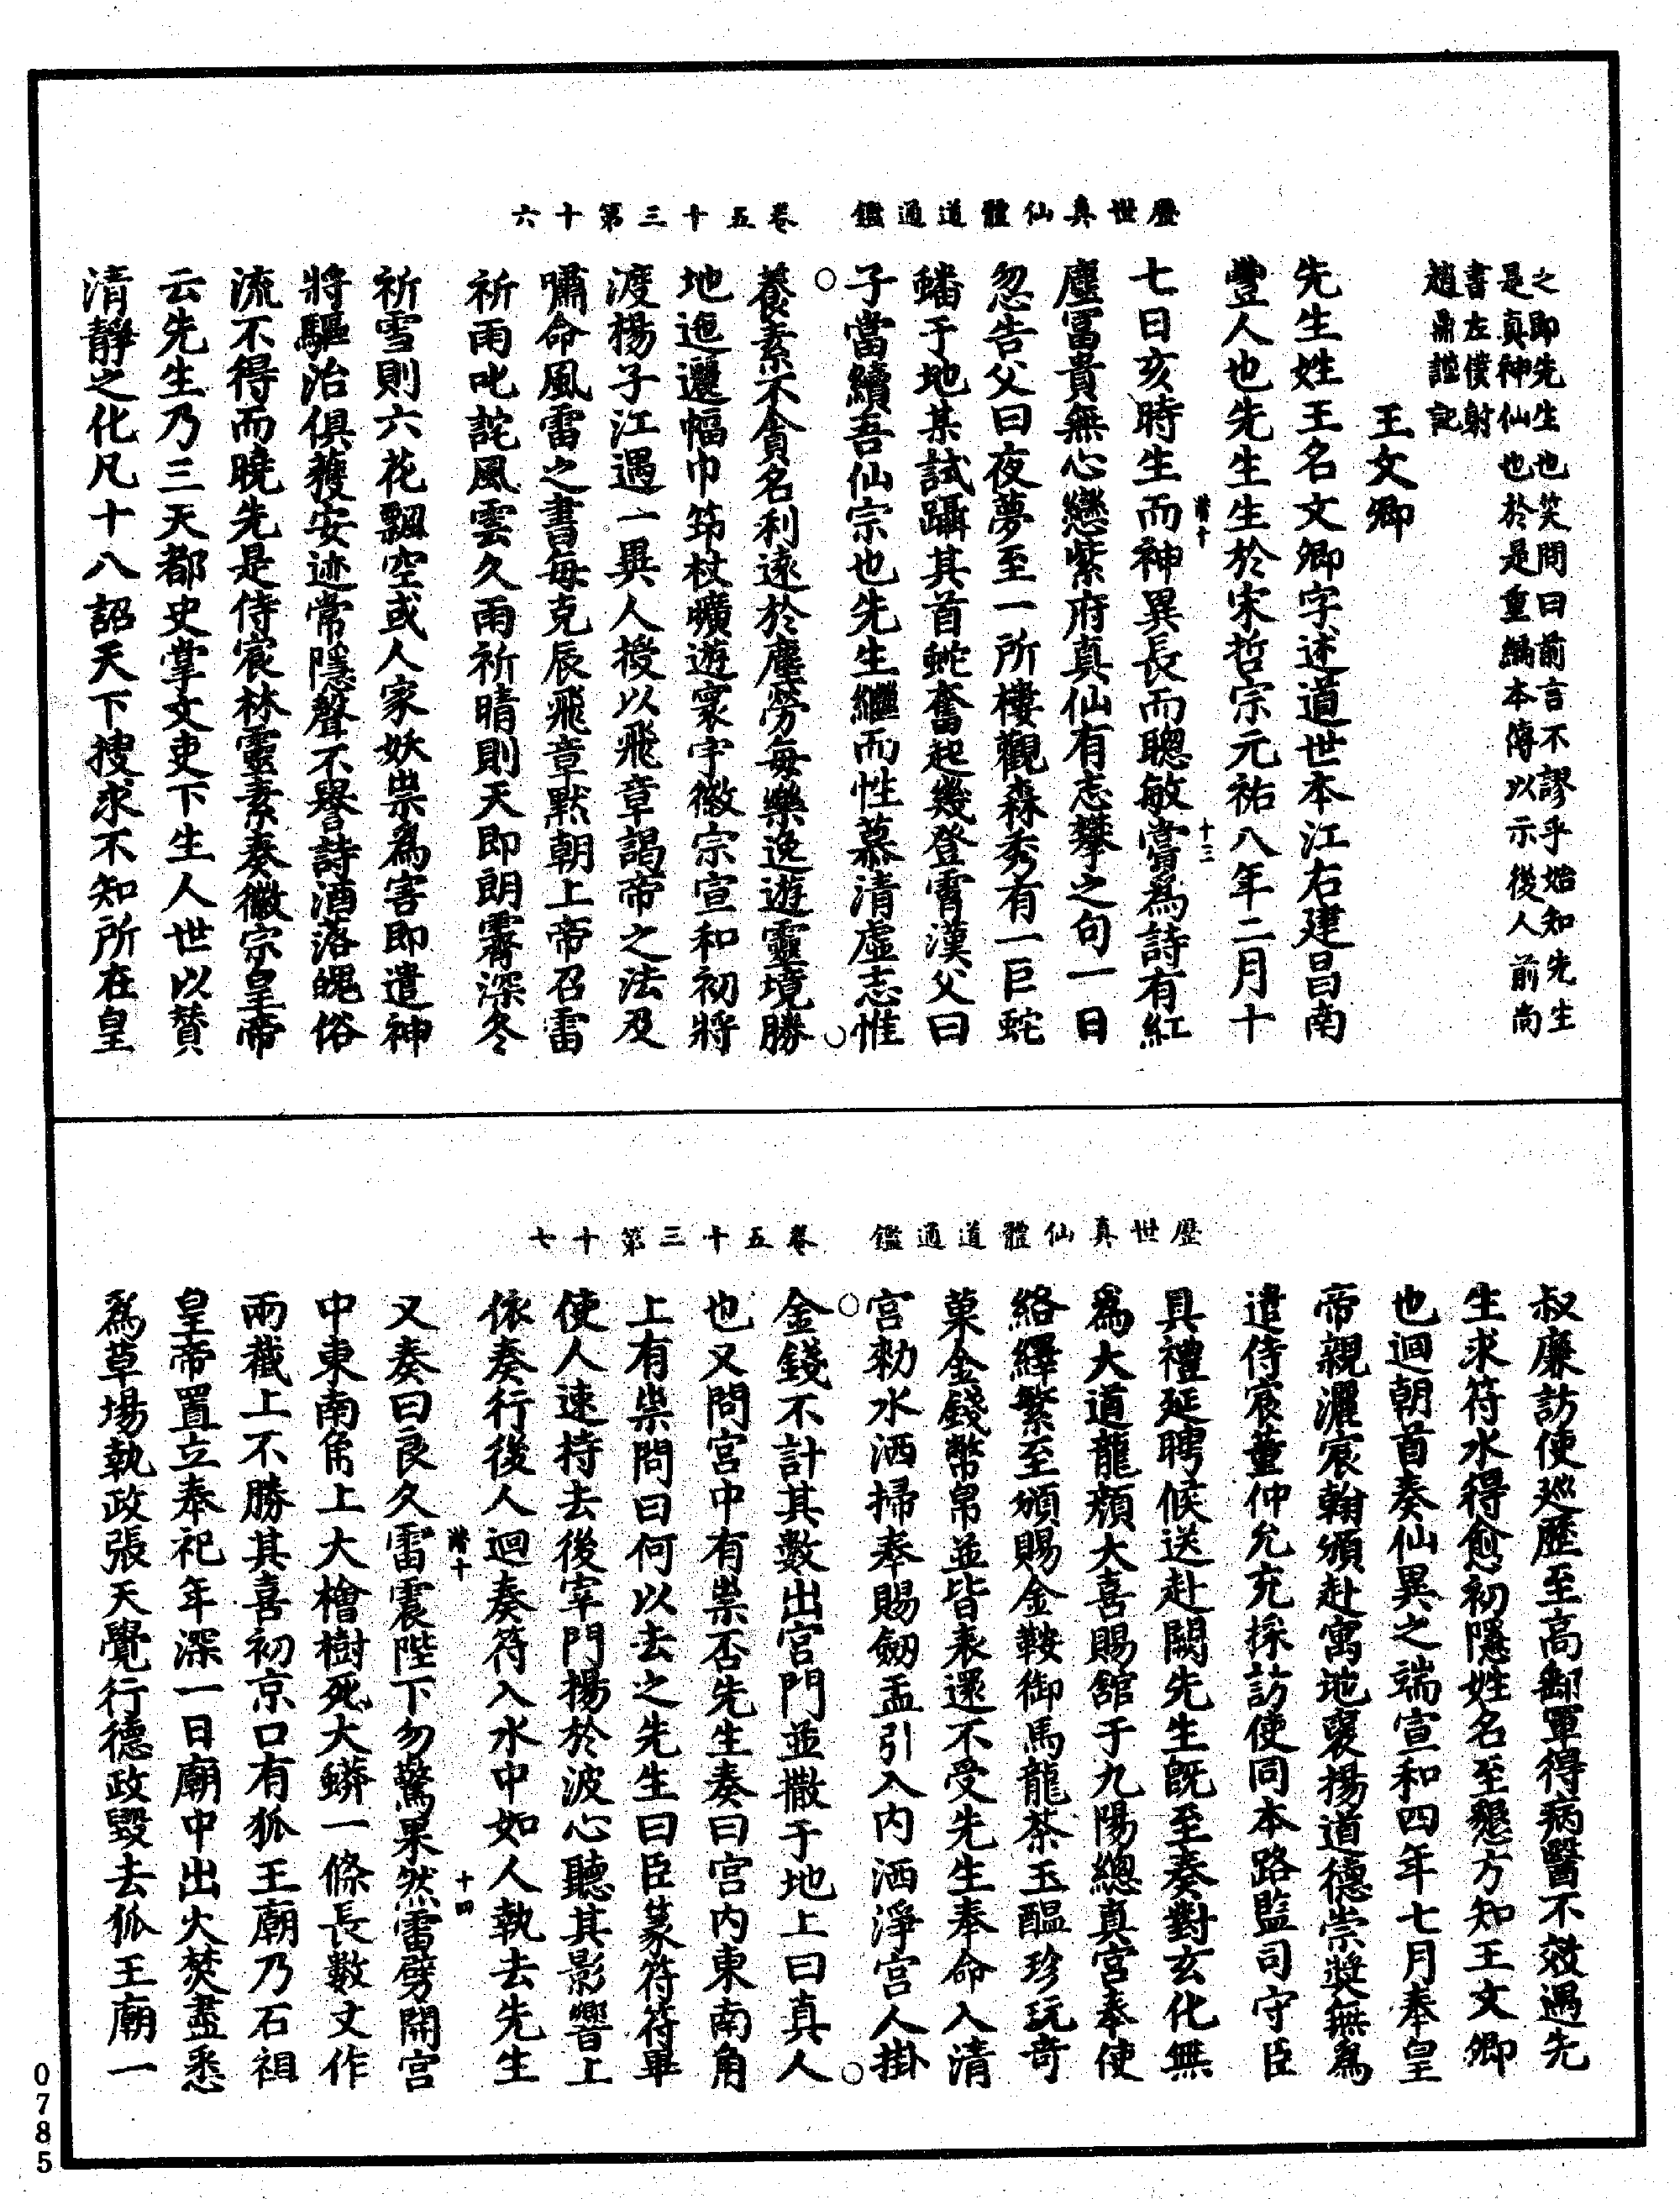 歷世真仙體道通鑑　卷五十三第十六
之即先生也笑問曰前言不謬乎始知先生
是真神仙也於是重編本傳以示後人前尚
書左僕射
趙鼎謹記
王文卿
先生姓王名文卿字述道世本江右建昌南
豐人也先生生於宋哲宗元祐八年二月十
七日亥時生而神異長而聰敏嘗為詩有紅
塵冨貴無心戀紫府真仙有志攀之句一日
忽告父曰夜夢至一所樓觀森秀有一巨蛇
蟠于地某試躡其首蛇奮起幾登霄漢父曰
子當續吾仙宗也先生繼而性慕清虛志惟
養素不貪名利遠於塵勞每樂逸遊靈境勝
地迤邐幅巾筇杖曠遊寰宇徽宗宣和初將
渡楊子江遇一異人授以飛章謁帝之法及
嘯命風雷之書每克辰飛章默朝上帝召雷
祈雨叱詫風雲久雨祈晴則天即朗霽深冬
祈雪則六花飄空或人家妖祟為害即遣神
將驅治俱獲安迹常隱聲不譽詩酒落魄俗
流不得而曉先是侍宸林靈素奏徽宗皇帝
云先生乃三天都史掌文吏下生人世以贊
清靜之化凡十八詔天下搜求不知所在皇
歷世真仙體道通鑑　卷五十三第十七
叔廉訪使廵歷至高郵軍得病醫不效遇先
生求符水得愈初隱姓名至懇方知王文卿
也迴朝首奏仙異之端宣和四年七月奉皇
帝親灑宸翰頒赴寓地襃揚道德崇奬無為
遣侍宸董仲允充採訪使同本路監司守臣
具禮延聘候送赴闕先生既至奏對玄化無
為大道龍顏大喜賜舘于九陽總真宮奉使
絡繹繁至頒賜金鞍御馬龍茶玉醖珍玩奇
菓金錢幣帛並皆表還不受先生奉命入清
宮勑水洒掃奉賜劒盂引入內洒淨宮人掛
金錢不計其數出宮門並撒于地上曰真人
也又問宮中有祟否先生奏曰宮內東南角
上有祟問曰何以去之先生曰臣篆符符畢
使人速持去後宰門揚於波心聽其影響上
依奏行後人迴奏符入水中如人執去先生
又奏曰良久雷震陛下勿驚果然雷劈開宮
中東南角上大檜樹死大蟒一條長數丈作
兩截上不勝其喜初京口有狐王廟乃石祖
皇帝置立奉祀年深一日廟中出火焚盡悉
為草場執政張天覺行德政毀去狐王廟一
十三
十四
0785